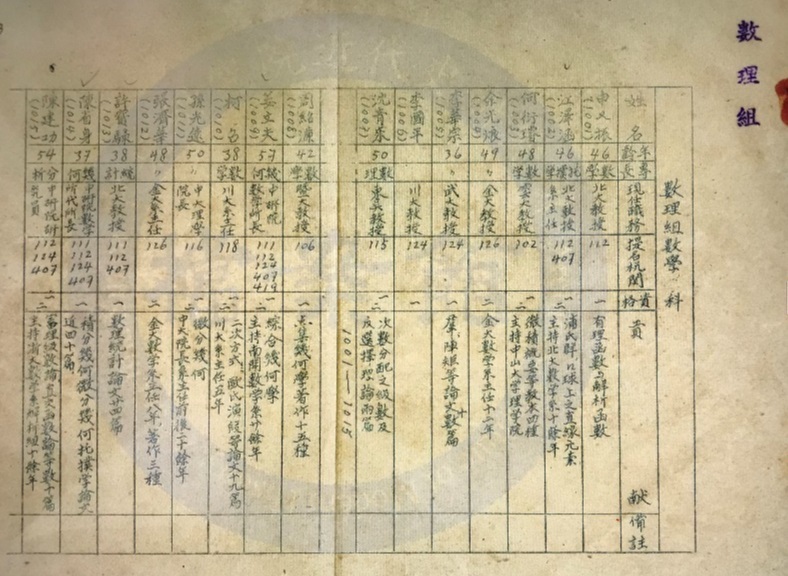 數理組
數理組數學科
姓名 年齡 專 現任職務 提名机関 資格 貢献 備註
申又振 (1001) 46 數學 北大教授 112 一 有理函數与解析函數
江澤涵 (1002) 46 北大教授 系主任 112 407 一二 浦氏群 主持北大數學系十餘年
何衍璿 (1003) 48 數學 雲大教授 102 一二 微積概要等教本四種 主持中山大學理學院
余光烺 (1004) 49 〃 金大教授 126 二 金大數學系主任十二年
李華宗 36 〃 武大教授 124 一 羣,陣,矩等論文數篇
李國平 (1006) 川大教授 124 一
沈青來 (1007) 50 數理 教授 115 一二 次數分配之級數及 及選擇理論兩篇
1001—1015
周紹濂 (1008) 42 數學 教授 106 一
姜立夫 (1009) 57 幾何 中研院數學所長 111 112 124 407 419 一二 綜合幾何學 主持南開數學系廿餘年
柯召 (1010) 38 數學 川大系主任 118 一二 二次方式, 論文十九篇 川大系主任五年
孫光遠 (1011) 50 〃 中大理學院長 116 一二 微分幾何 中大院長系主任前後二十餘年
張濟華 (1012) 48 〃 金大系主任 126 二 金大數學系主任八年,著作三種
許寶騄 (1013) 38 統計 北大教授 111 112 407 一 數理統計論文廿四篇
陳省身 (1014) 37 幾何 中研院數學所代所長 111 112 124 407 一 積分幾何微分幾何托撲學論文 近四十篇
陳建功 (1015) 54 分析 中研院研究員 112 124 407 一二 主持浙大數學系 十餘年